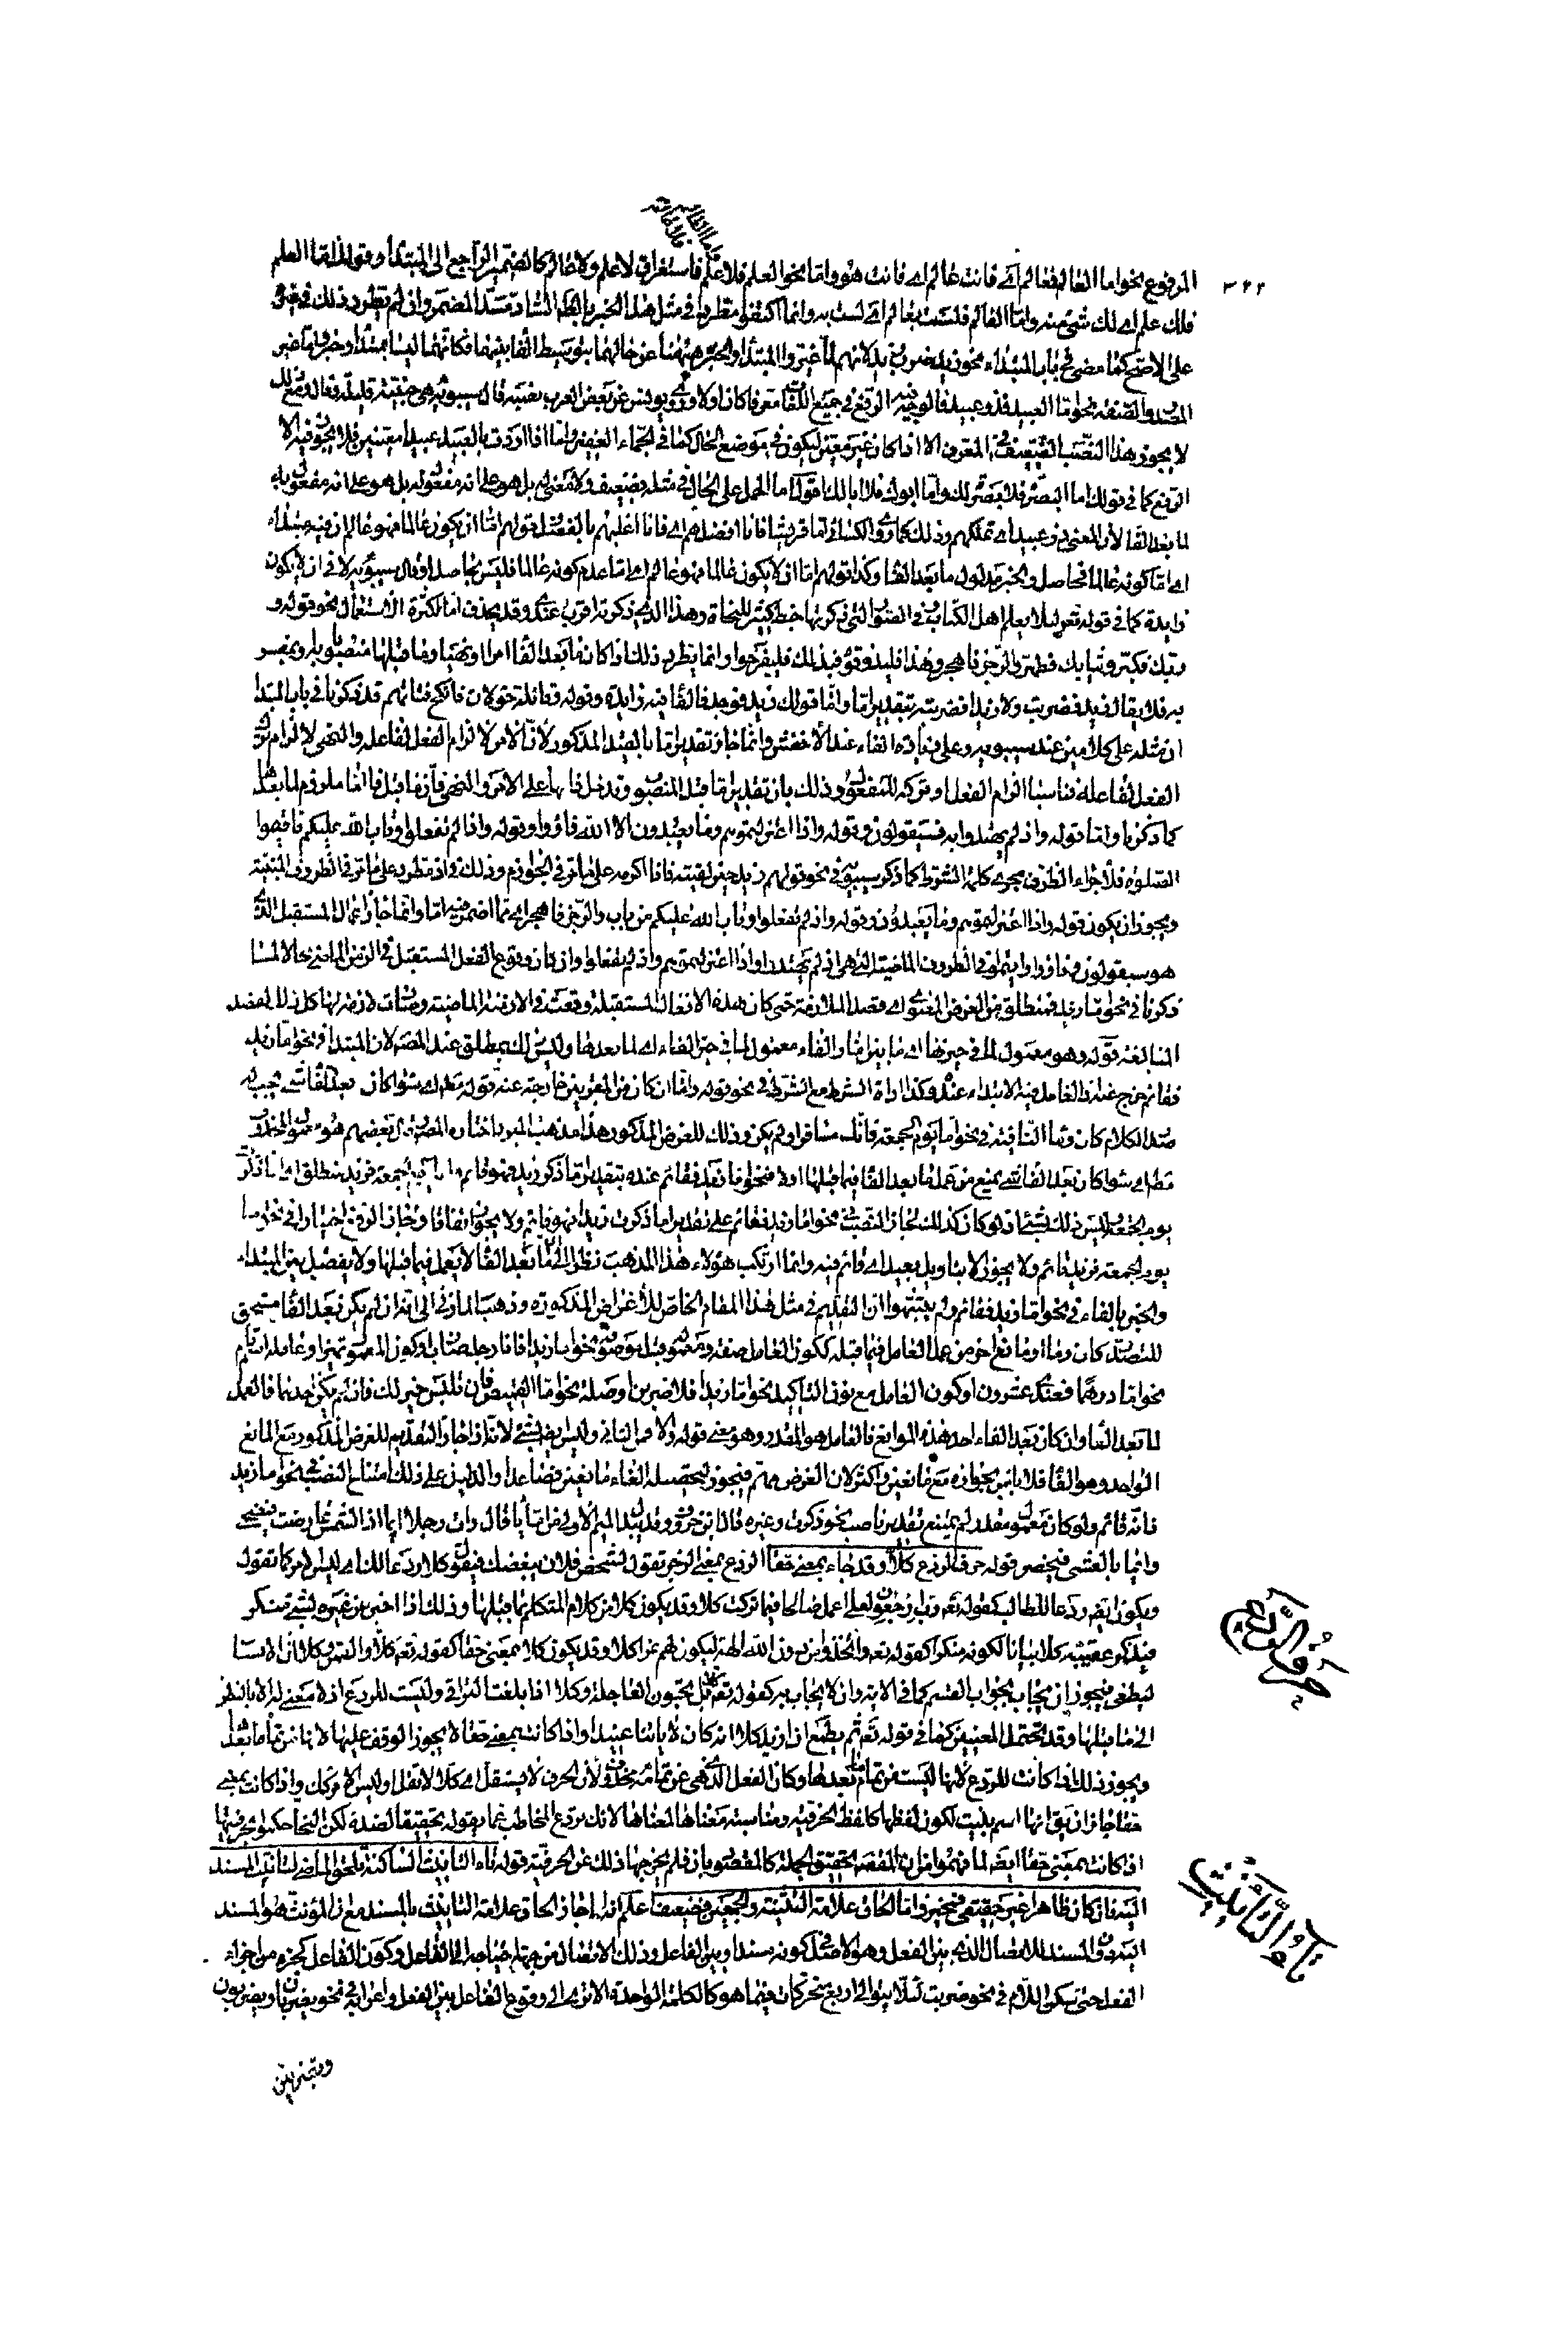 ٣٢٢
المرفوع نحو اما العالم فعالم اى فانت عالم اى فانت هو واما نحو العلم فلا علم فاستغراق لا علم ولا عالم كالضمير الراجع الى المبتدأ وقولك اما العلم
فلك علم اى لك شىء منه واما العالم فلست بعالم اى لست به وانما اكتفوا مطردا فى مثل هذا الخبر بالظاهر الساد مسد المضمر وان لم يطرد ذلك فى غيره
على الاصح كما مضى فى باب المبتداء نحو زيد ضرب زيد لانهم لما غيروا المبتدا والخبر ههنا عن حالهما بتوسيط الفا بينهما فكانهما ليسا بمبتدأ وخبر واما غير
المصدر والصفة نحو اما العبيد فذو عبيد فالوجه فيه الرفع فى جميع اللغات معرفا كان اولا وروى يونس عن بعض العرب نصبه قال سيبويه هى خبيثة قليلة وقال ومع ذلك
لا يجوز هذا النصب الضعيف فى المعرف الا اذا كان غير معين ليكون فى موضع الحال كما فى الجماء الغفير واما اذا اردت بالعبيد عبيدا معينين فلا يجوز فيه الا
الرفع كما فى قولك اما البصرة فلا بصرة لك واما ابوك فلا ابا لك اما الحمل على الحال فى مثله فضعيف ولا معنى له بل هو على انه مفعول به
لما بعد الفا لان المعنى ذو عبيد اى تملكهم وذلك كما روى الكسائى اما قريشا فانا افضلهم اى فانا اغلبهم بالفضل قولهم اما ان يكون عالما فهو عالم ان فيه مبتداء
اى اما كونه عالما فحاصل والخبر مدلول ما بعد الفا وكذا قولهم اما ان لا يكون عالما فهو عالم اى اما عدم كونه عالما فليس بحاصل وقال سيبويه لا فى ان لا يكون
زايدة كما فى قوله تعالى لئلا يعلم اهل الكتاب وفى الصور التى ذكرتها خبط كثير للنحاة وهذا الذى ذكرته اقرب عندى وقد يحذف اما لكثرة الاستعمال نحو قوله و
ربك فكبر وثيابك فطهر والرجز فاهجر وهذا فليذوقوه فبذلك فليفرحوا وانما يطرد ذلك اذا كان ما بعد الفا امرا او نهيا وما قبلها منصوبا به او بمفسر
به فلا يقال زيد فضربت ولا زيدا فضربته بتقدير اما واما قولك زيد فوجد فالفا فيه زايدة وقوله وقائلة خولان فانكح فتاتهم قد ذكرنا فى باب المبتدا
ان مثله على كلامين عند سيبويه وعلى زيادة الفاء عند الاخفش وانما جاز تقدير اما بالقيد المذكور لان الامر لالزام الفعل لفاعله والنهى لالزام ترك
الفعل لفاعله فناسبا الزام الفعل او تركه للمفعول وذلك بان تقدير اما قبل المنصوب وتدخل فاءها على الامر والنهى فان ما قبل فاء اما ملزوم لما بعدها
كما ذكرنا واما قوله واذ لم يهتدوا به فسيقولون وقوله واذ اعتزلتموهم وما يعبدون الا الله فاووا وقوله واذ لم تفعلوا وتاب الله عليكم فاقيموا
الصلوة فلاجراء الظرف مجرى كلمة الشرط كما ذكر سيبويه فى نحو قولهم زيد حين لقيته فانا اكرمه على ما مر فى الجوازم وذلك فى اذ مطرد على ما مر فى الظروف المبنية
ويجوز ان يكون قوله واذا اعتزلتموهم وما يعبدون وقوله واذ لم تفعلوا وتاب الله عليكم من باب والرجز فاهجر اى مما اضمر فيه اما وانما جاز اعمال المستقبل الذى
هو سيقولون وفاووا واقيموا فى الظروف الماضية التى هى اذ لم يهتدوا واذا اعتزلتموهم واذ لم تفعلوا وان كان وقوع الفعل المستقبل فى الزمن الماضى محالا لما
ذكرنا فى نحو اما زيد فمنطلق من الغرض المعنوى اى قصد الملازمة حتى كان هذه الافعال المستقبلة وقعت فى الازمنة الماضية وصارت لازمة لها كل ذلك لقصد
المبالغة قوله وهو معمول لما فى حيزها اى ما بين اما والفاء معمول لما فى حيز الفاء اى لما بعدها وليس ذلك بمطلق عند المصنف لان المبتدا فى نحو اما زيد
فقائم خرج عنه اذ العامل فيه الابتداء عنده وكذا اداة الشرط مع الشرط فى نحو قوله واما ان كان من المقربين خارجة عنه قوله مطلقا اى سواء كان بعد الفا شىء يجب له
صدر الكلام كان وما النافية فى نحو اما يوم الجمعة فانك مسافر او لم يكن وذلك للغرض المذكور هذا مذهب المبرد اختاره المصنف وقال بعضهم هو معمول المحذوف
مطلقا اى سواء كان بعد الفا شىء يمنع من عمل ما بعد الفا فيما قبلها اولا فنحو اما زيد فقائم عنده بتقدير اما ذكر زيد فهو قائم واما يوم الجمعة فزيد منطلق اى اما ذكرت
يوم الجمعة وليس ذلك بشىء اذ لو كان كذلك لجاز النصب فى نحو اما زيد فقائم على تقدير اما ذكرت زيدا فهو قائم ولا يجوز اتفاقا وجاز الرفع اختيارا فى نحو اما
يوم الجمعة فزيد قائم ولا يجوز الا بتاويل بعيد اى قائم فيه وانما ارتكب هؤلاء هذا المذهب نظرا الى ان ما بعد الفا لا يعمل فيما قبلها ولا يفصل بين المبتداء
والخبر بالفاء فى نحو اما زيد فقائم ولم يتنبهوا ان التقديم فى مثل هذا المقام الخاص للاغراض المذكورة وذهب المازنى الى انه ان لم يكن بعد الفا مستحق
للتصدر كان وما او مانع اخر من عمل العامل فيما قبله ككون العامل صفة ومعموله قبل موصوفه نحو اما زيدا فانا رجل ضارب او كون المعمول تميزا وعامله اسم تام
نحو اما درهما فعندى عشرون او كون العامل مع نون التاكيد نحو اما زيدا فلاضربن او صلة نحو اما القميص فان تلبس خير لك فان لم يكن احدها فالعمل
لما بعد الفا وان كان بعد الفاء احد هذه الموانع فالعامل هو المقدر وهو معنى قوله والا فمن الثانى وليس ايضا بشىء لانه اذا جاز التقديم للغرض المذكور مع المانع
الواحد وهو الفا فلا باس بجوازه مع مانعين واكثر لان الغرض مهم فيجوز لتحصيله الغاء مانعين فصاعدا والدليل على ذلك امتناع النصب فى نحو اما زيد
فانه قائم ولو كان معمول مقدر لم يمتنع تقدير ناصب نحو ذكرت وغيره قال ابن خروف وقد يبدل الميم الاولى من اما ياء قال رات رجلا ايما اذا الشمس عارضت فيضحى
وايما بالعشى فيخصر قوله حرف الردع كلا وقد جاء بمعنى حقا الردع بمعنى الزجر تقول لشخص فلان يبغضك فيقول كلا ردعا لك اى ليس الامر كما تقول
ويكون ايضا ردعا للطالب كقوله تعالى رب ارجعون لعلى اعمل صالحا فيما تركت كلا وقد يكون كلا من كلام المتكلم بما قبلها وذلك اذا اخبر عن غيره بشىء منكر
فيذكر عقيبه كلا بيانا لكونه منكرا كقوله تعالى واتخذوا من دون الله الهة ليكون لهم عزا كلا وقد يكون كلا بمعنى حقا كقوله تعالى كلا والقمر كلا ان الانسان
ليطغى فيجوز ان يجاب بجواب القسم كما فى الاية وان لا يجاب به كقوله تعالى كلا بل تحبون العاجلة وكلا اذا بلغت التراقى وليست للردع اذ لا معنى له الا بالنظر
الى ما قبلها وقد يحتمل المعنيين كما فى قوله تعالى ثم يطمع ان ازيد كلا انه كان لاياتنا عنيدا واذا كانت بمعنى حقا لا يجوز الوقف عليها لانها من تمام ما بعدها
ويجوز ذلك اذا كانت للردع لانها ليست من تمام ما بعدها وكان الفعل الذى هى من تمامه محذوف لان الحرف لا يستقل اى كلا لا تقل او ليس الامر كذلك واذا كانت بمعنى
حقا جاز ان يقال انها اسم بنيت لكون لفظها كلفظ الحرفية ومناسبة معناها لمعناها لانك تردع المخاطب عما يقوله تحقيقا لضده لكن النحاة حكموا بحرفيتها
اذا كانت بمعنى حقا ايضا لما فهموا من ان المقصود تحقيق الجملة كالمقصود بان فلم يخرجها ذلك عن الحرفية قوله تاء التانيث الساكنة تلحق الماضى لتانيث المسند
اليه فان كان ظاهرا غير حقيقى فمخير واما الحاق علامة التثنية والجمعين فضعيف اعلم انه انما جاز الحاق علامة التانيث بالمسند مع ان المؤنث هو المسند
اليه دون المسند للاتصال الذى بين الفعل وهو الاصل فى كونه مسندا وبين الفاعل وذلك الاتصال من جهة احتياجه الى الفاعل وكون الفاعل كجزء من اجزاء
الفعل حتى سكن اللام فى نحو ضربت لئلا يتوالى اربع متحركات فيما هو كالكلمة الواحدة الا ترى الى وقوع الفاعل بين الفعل واعرابه فى نحو يضربان ويضربون
وتضربين
حرف الردع
تاء التانيث